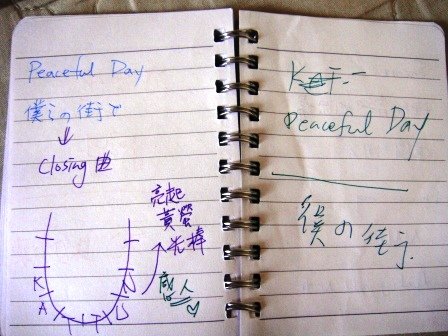 Peaceful Day
僕らの街で
Closing 曲
亮起
黃螢
光棒
感人
K
A
T
T
U
N
Peaceful Day
僕の街で